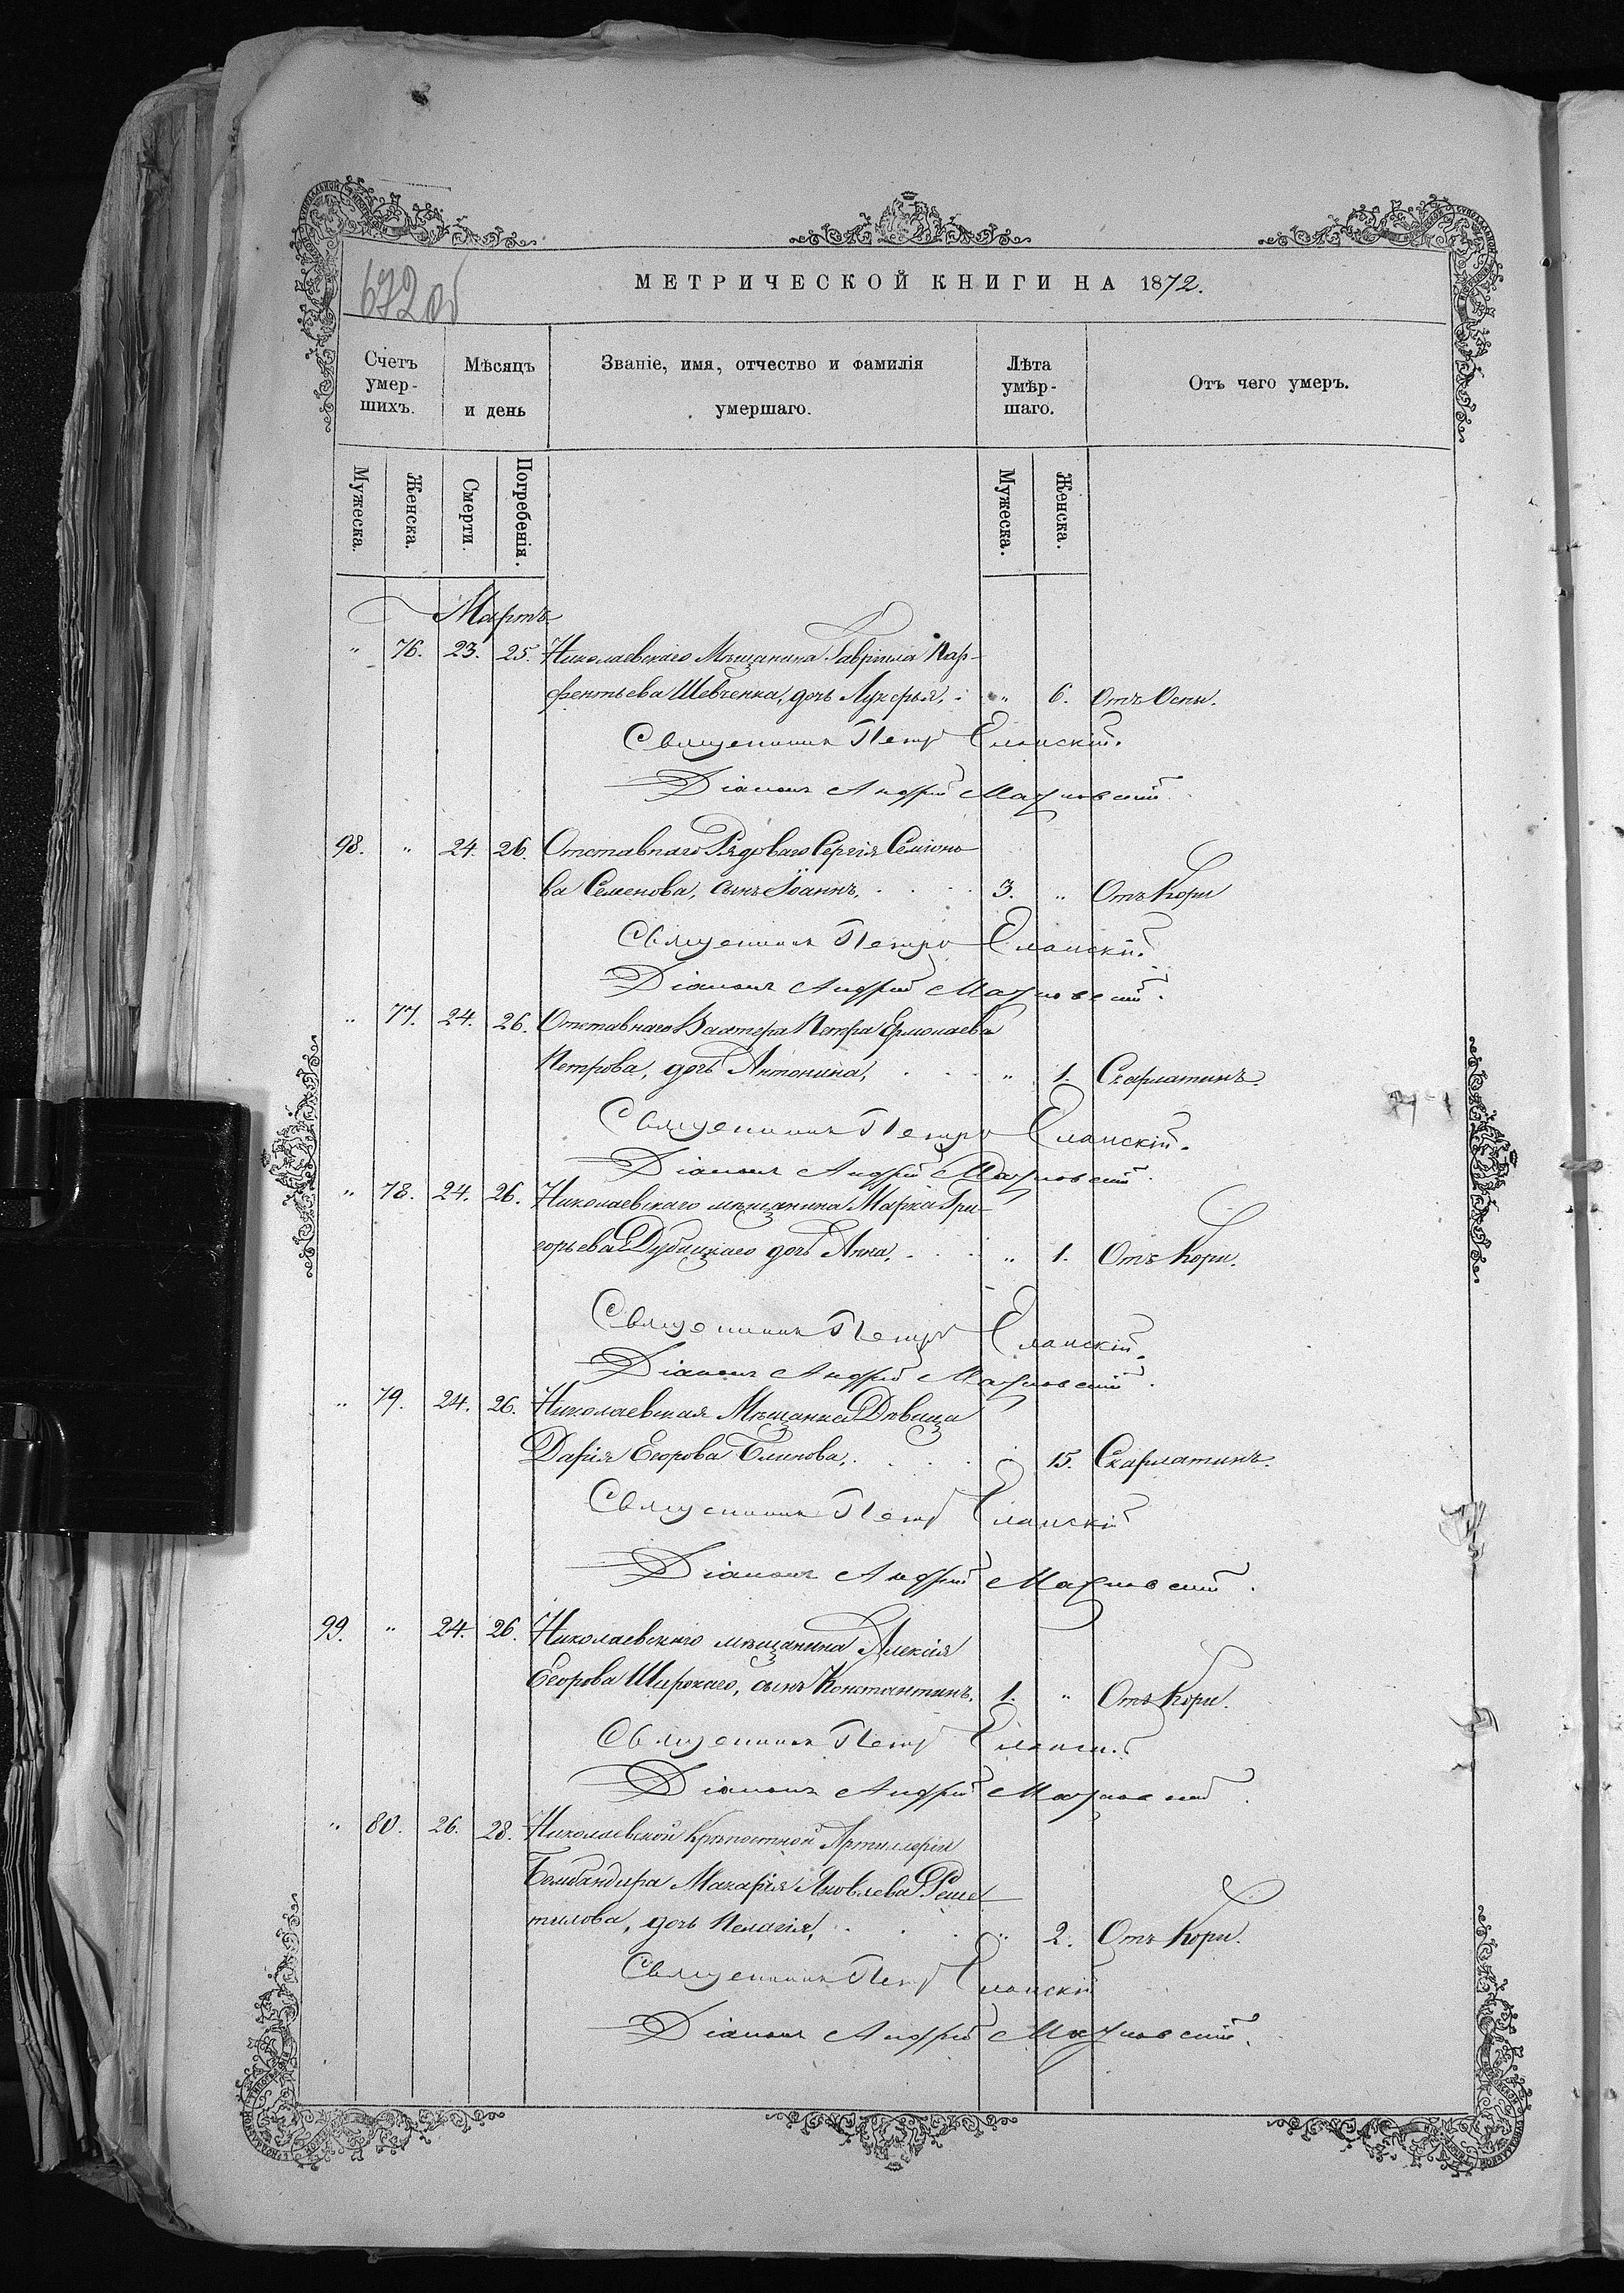 672 об
МЕТРИЧЕСКОЙ КНИГИ НА 1872.
Счетъ умер- шихъ.
Мѣсяцъ и день
Званіе, имя, отчество и фамилія умершаго.
Лѣта умѣр- шаго.
Отъ чего умеръ.
Мужеска. Женска. Смерти. Погребенія. Мужеска. Женска.
Мартъ
" 76. 23. 25. Николаевскаго Мѣщанина Гавріила Пар-
фентьева Шевченка, дочь Лукерья, " 6. Отъ Оспы.
Священникъ Петръ Еланскій.
Діаконъ Андрей Махновскій
98. " 24. 26. Отставнаго Рядоваго Сергія Семіоно-
ва Семенова, сынъ Іоаннъ, 3. " Отъ Кори
Священникъ Петръ Еланскій.
Діаконъ Андрей Махновскій.
" 77. 24. 26. Отставнаго Вахтера Петра Ермолаева
Петрова, дочь Антонина, " 1. Скарлатинъ.
Священникъ Петръ Еланскій.
Діаконъ Андрей Махновскій.
" 78. 24. 26. Николаевскаго мѣщанина Марка Гри-
горьева Дубицкаго дочь Анна, " 1. Отъ Кори.
Священникъ Петръ Еланскій.
Діаконъ Андрей Махновскій.
" 79. 24. 26. Николаевская Мѣщанка Дѣвица
Дарія Егорова Блинова, 15. Скарлатинъ.
Священникъ Петръ Еланскій
Діаконъ Андрей Махновскій.
99. " 24. 26. Николаевскаго мѣщанина Алексія
Егорова Широкаго, сынъ Константинъ, 1. " Отъ Кори.
Священникъ Петръ Еланскій
Діаконъ Андрей Махновскій.
" 80. 26. 28. Николаевской Крѣпостной Артиллеріи
Бомбандира Макарія Яковлева Реше-
тилова, дочь Пелагія, " 2. Отъ Кори.
Священникъ Петръ Еланскій
Діаконъ Андрей Махновскій.